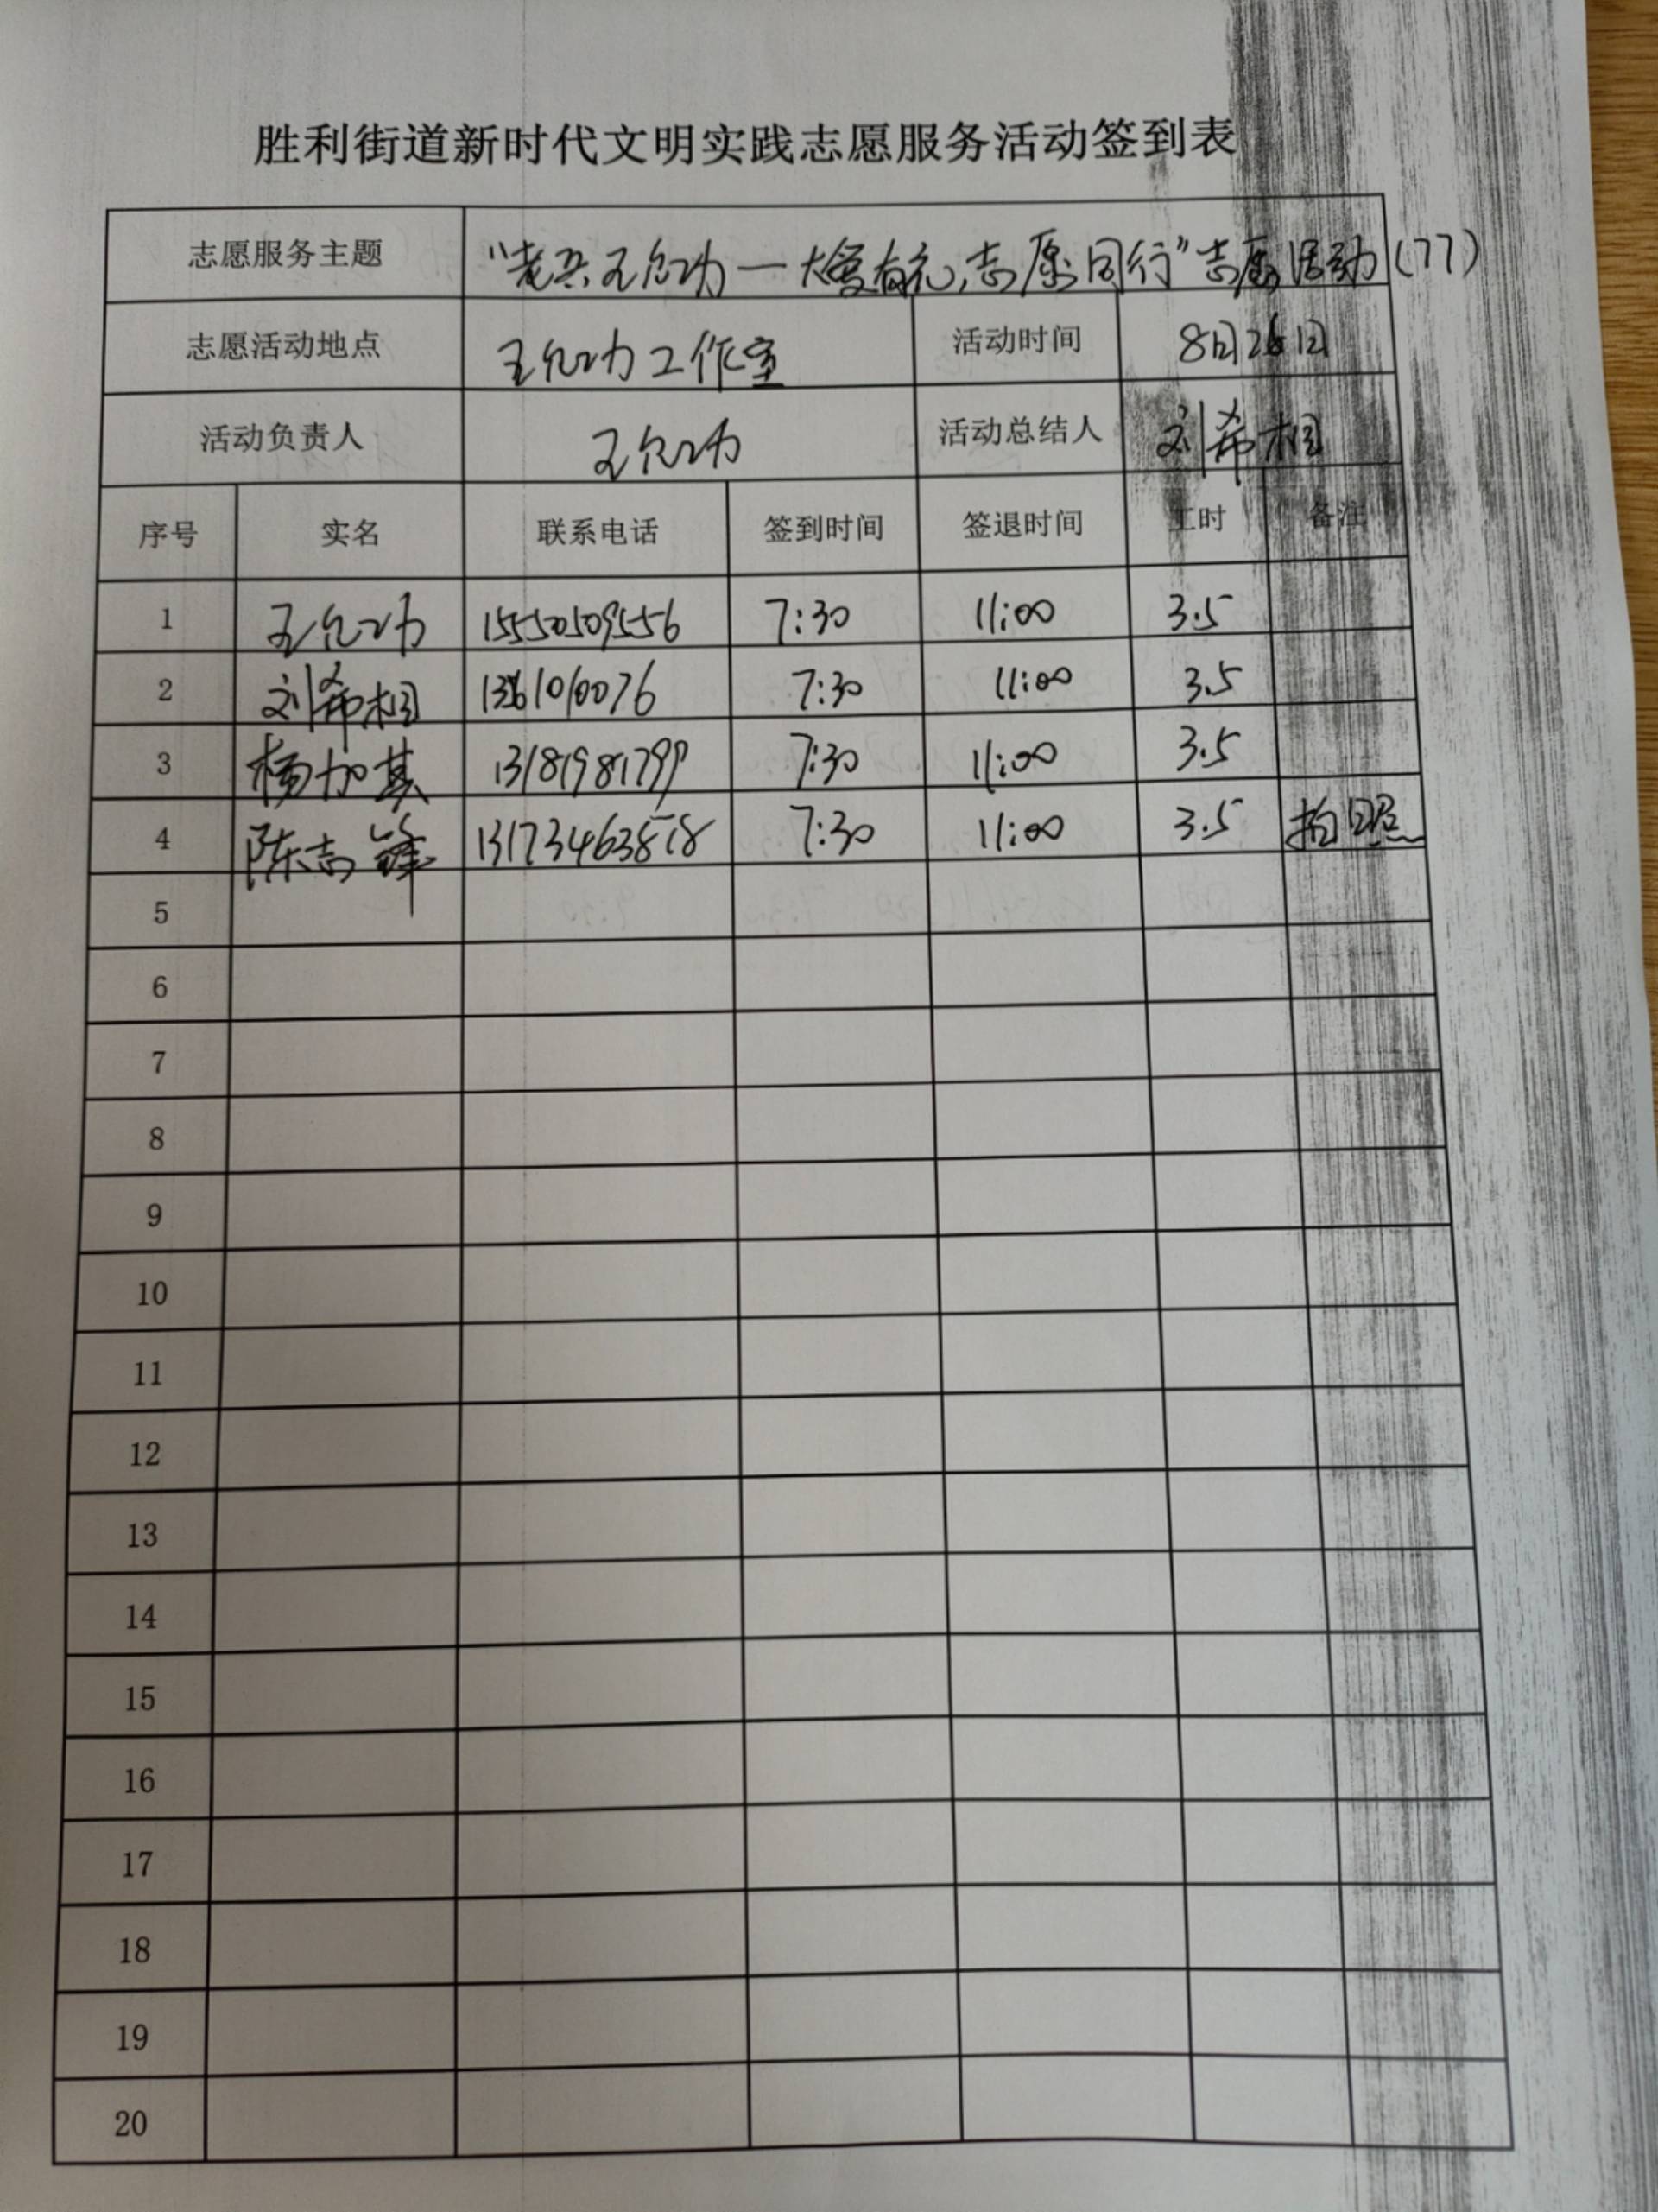 胜利街道新时代文明实践志愿服务活动签到表
志愿服务主题 “老兵王允功一大爱有礼,志愿同行”志愿活动(77)
志愿活动地点 王允功工作室 活动时间 8月26日
活动负责人 王允功 活动总结人 刘希相
序号 实名 联系电话 签到时间 签退时间 工时 备注
1 王允功 15550509556 7:30 11:00 3.5
2 刘希相 7:30 11:00 3.5
3 杨加其 13181981799 7:30 11:00 3.5
4 陈志锋 7:30 11:00 3.5 拍照
5
6
7
8
9
10
11
12
13
14
15
16
17
18
19
20